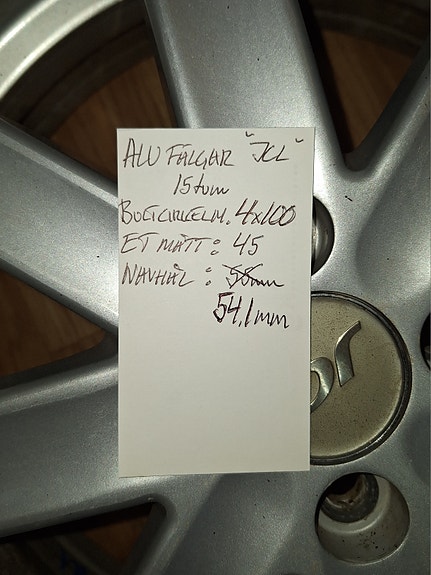 ALU FÄLGAR "JCL"
15 tum
BULTCIRKELM. 4x100
ET MÅTT: 45
NAVHÅL: 55mm
54,1mm